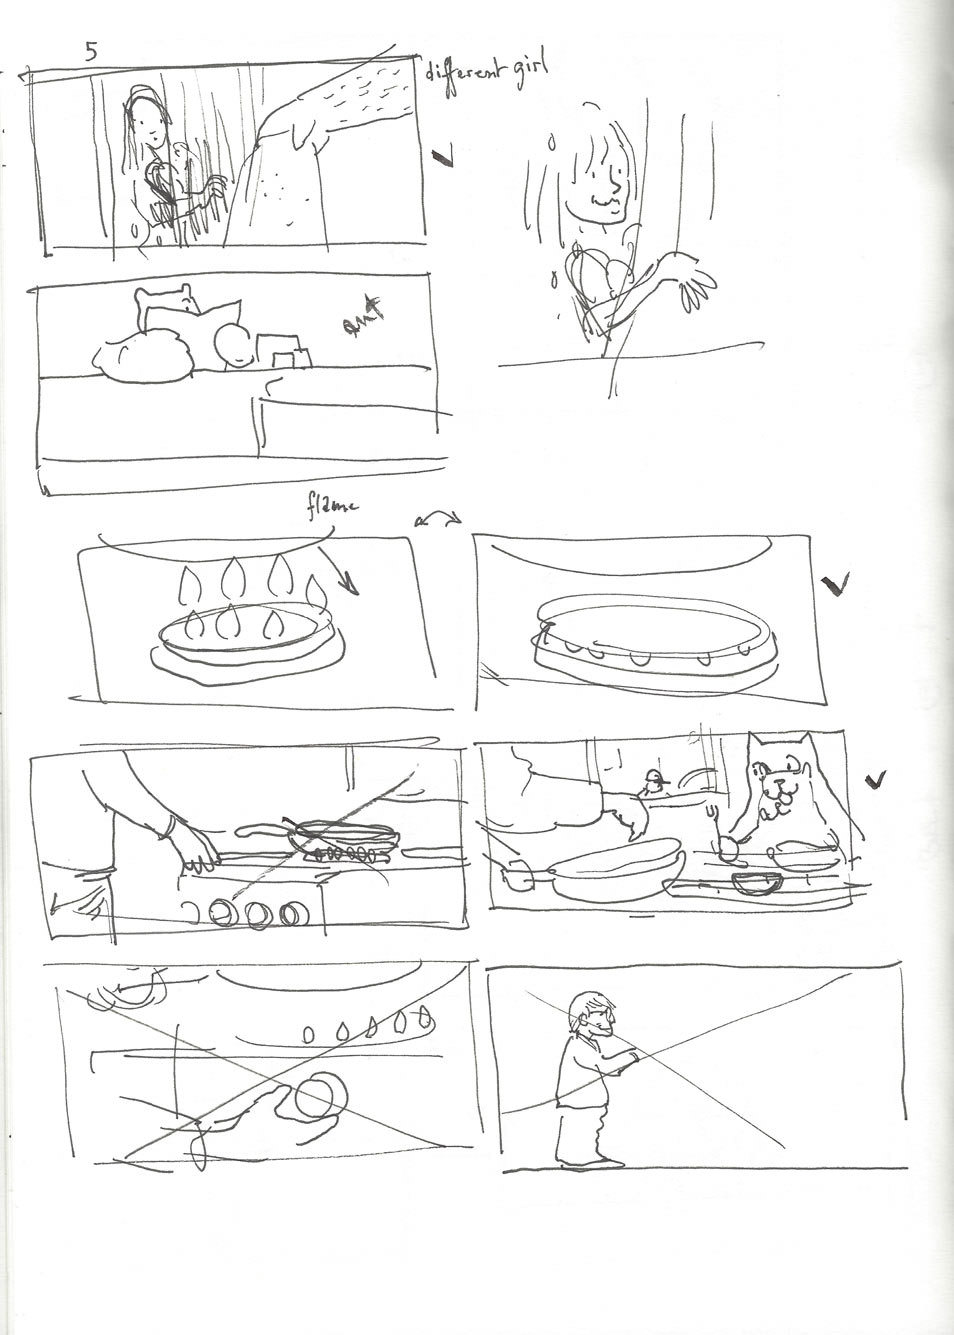 5
different girl
flame